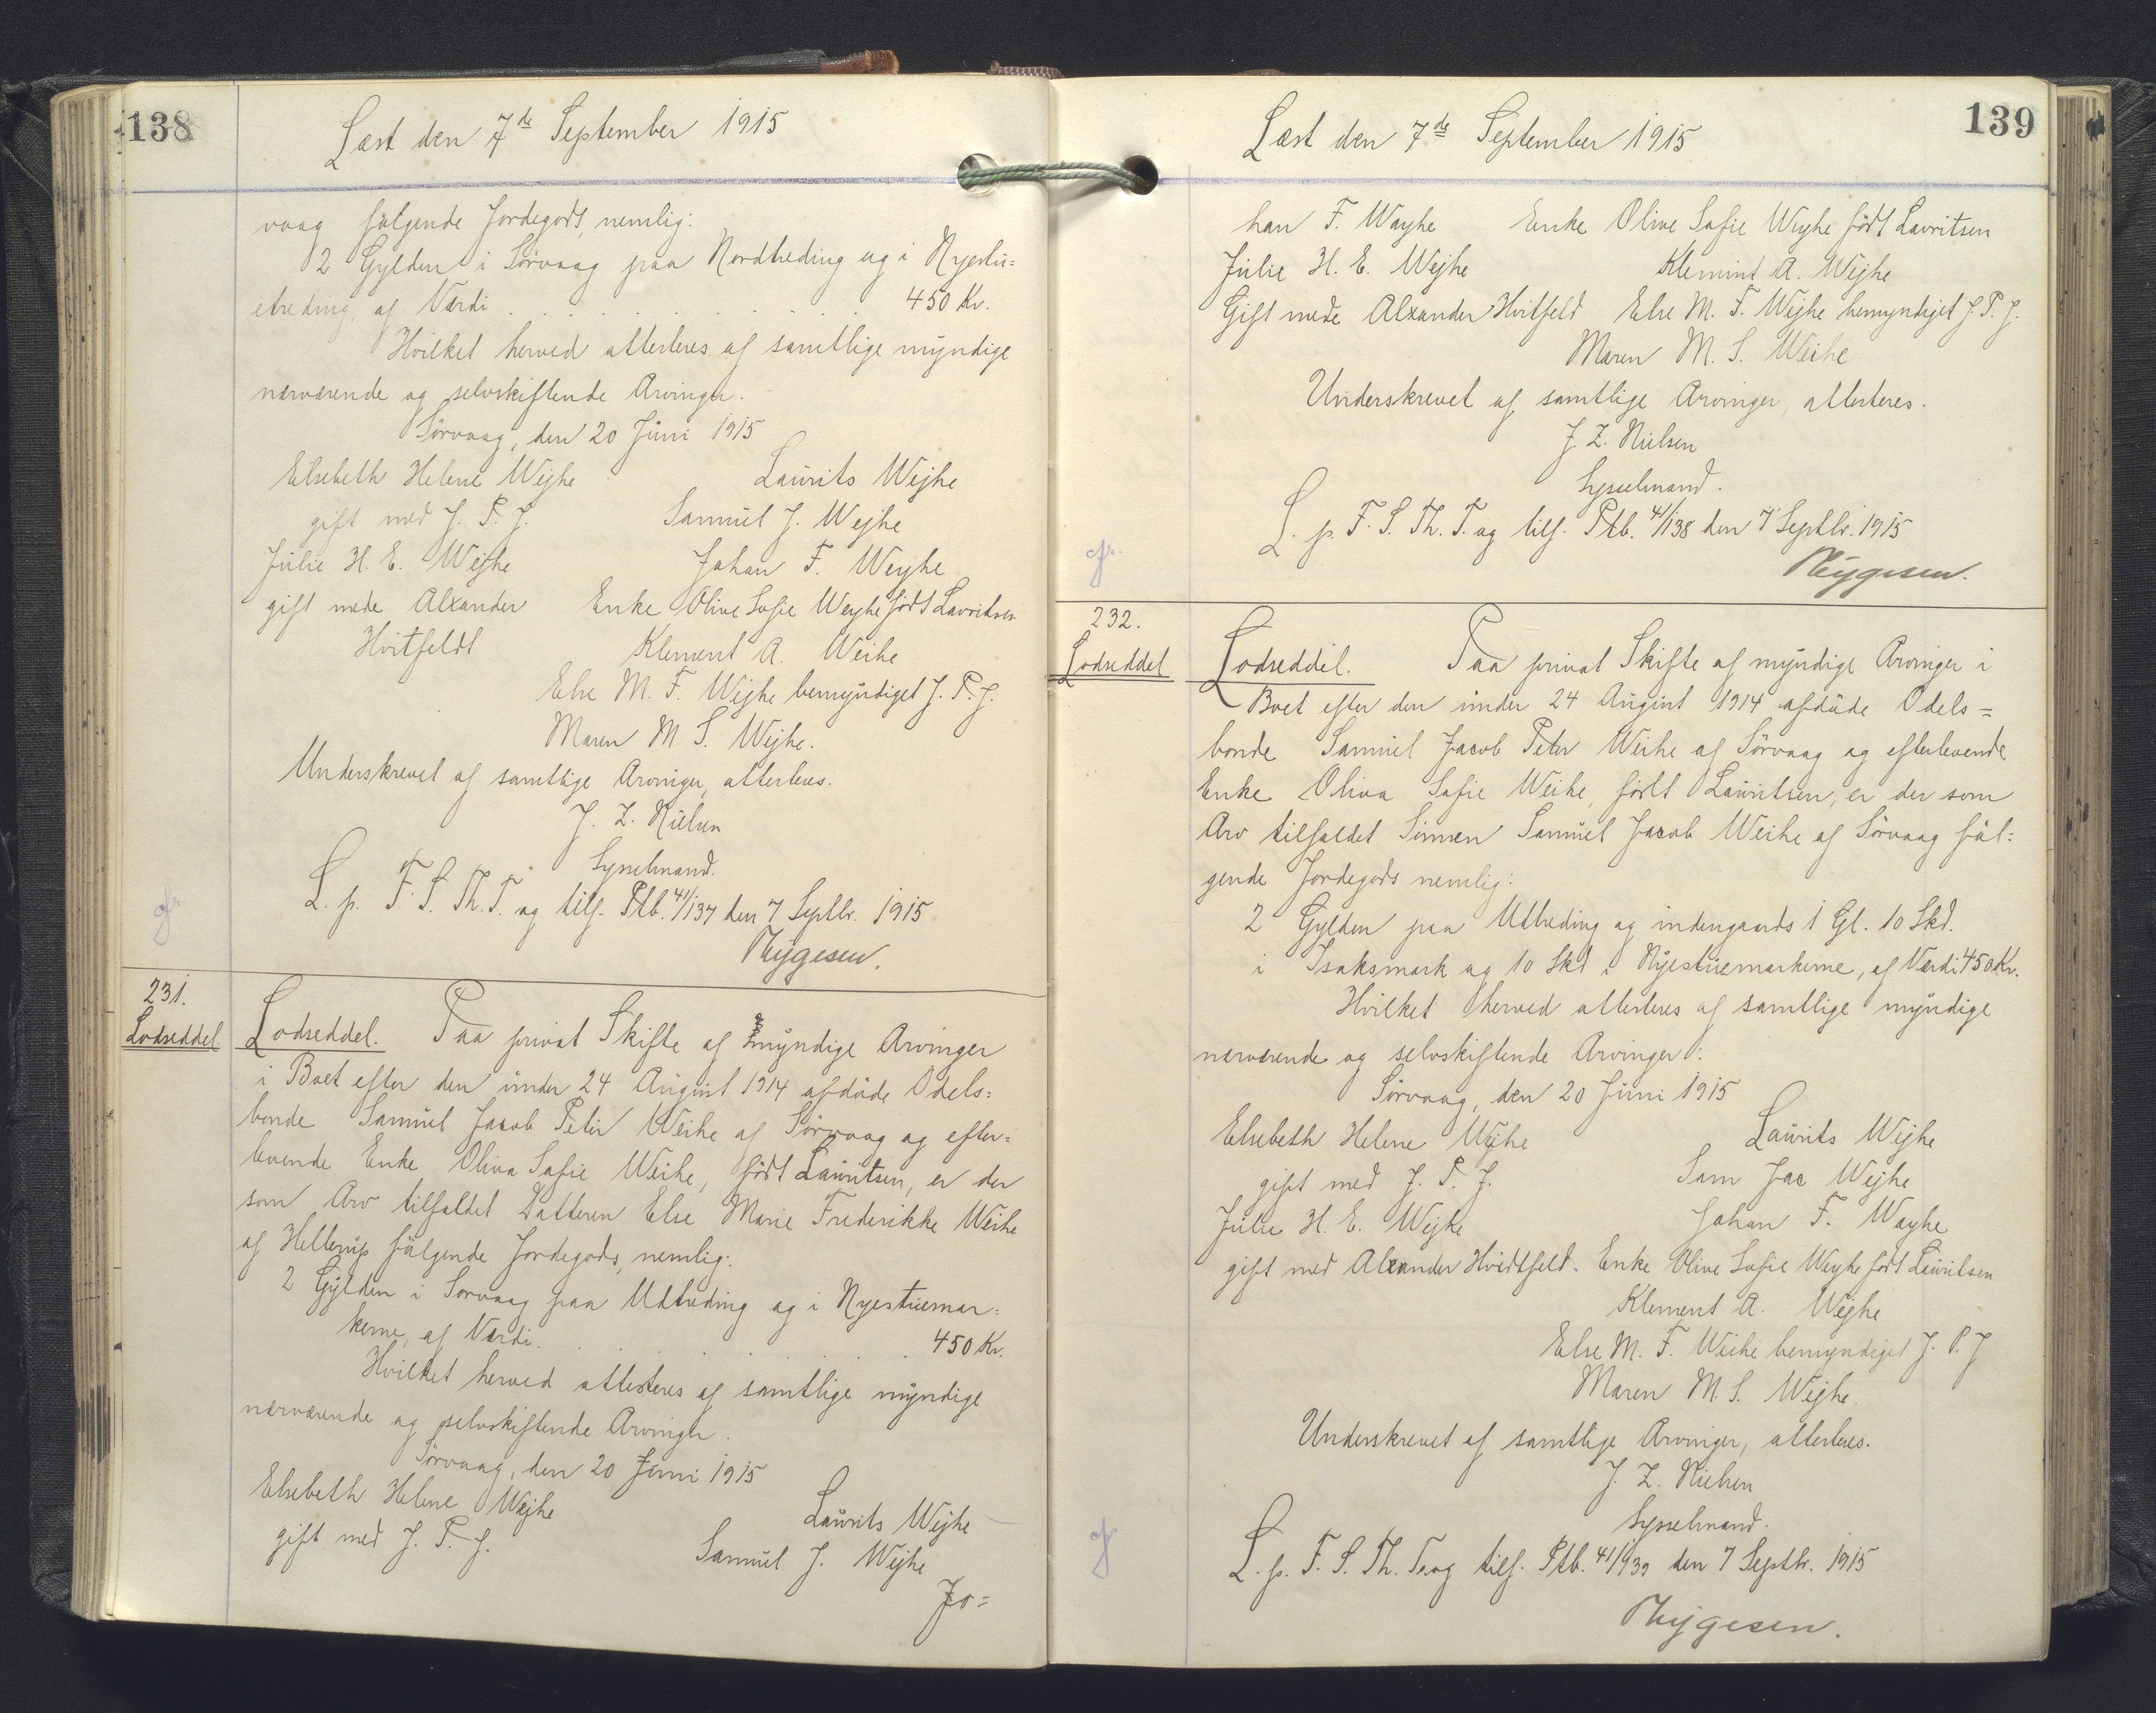 138
Læst den 7de September 1915
vaag følgende Jordegods, nemlig:
2 Gylden i Sørvaag paa Nordtreding og i Nyestu=
etreding, af Værdi . . . . . . . . . . 450 Kr.
Hvilket herved attesteres af samtlige myndige
nærværende og selvskiftende Arvinger.
Sørvaag, den 20 Juni 1915
Elsebeth Helene Wejhe Laurits Wejhe
gift med J. P. J. Samuel J. Wejhe
Julie H. E. Wejhe Johan F. Weyhe
gift mede Alxander Enke Olive Sofie Weyhe født Lavritsen
Hvitfeldt Klement A. Weihe
Else M. F. Wejhe bemyndiget J. P. J.
Maren M. S. Wejhe.
Underskrevet af samtlige Arvinger, attesteres.
J. Z. Nielsen
Sysselmand.
L. p. F. S. Th. T. og tilf. Ptb. 41/137 den 7 Septbr. 1915
Thygesen.
231.
Lodseddel.
Lodseddel. Paa privat Skifte af myndige Arvinger
i Boet efter den under 24 August 1914 afdøde Odels=
bonde Samuel Jacob Peter Weihe af Sørvaag og efter=
levende Enke Oliva Sofie Weihe, født Lauritsen, er der
som Arv tilfaldet Datteren Else Marie Frederikke Weihe
af Hellerup følgende Jordegods, nemlig:
2 Gylden i Sørvaag paa Udtreding og i Nyestuemar=
kerne, af Værdi. . . . . . . . . . 450 Kr.
Hvilket herved attesteres af samtlige myndige
nærværende og selvskiftende Arvinger.
Sørvaag, den 20 Juni 1915
Elsebeth Helene Wejhe Laurits Wejhe
gift med J. P. J. Samuel J. Wejhe
Jo=
139
Læst den 7de September 1915
han F. Wayhe Enke Olive Sofie Weyhe født Lavritsen
Julie H. E. Wejhe Klemint A. Wejhe
Gift mede Alxander Hvitfeld Else M. F. Wejhe bemyndiget J. P. J.
Maren M. S. Weihe
Underskrevet af samtlige Arvinger, attesteres.
J. Z. Nielsen
Sysselmand.
L. p. F. S. Th. T. og tilf. Ptb. 41/138 den 7 Septbr. 1915
Thygesen.
232.
Lodseddel
Lodseddel. Paa privat Skifte af myndige Arvinger i
Boet efter den under 24 August 1914 afdøde Odels=
bonde Samuel Jacob Peter Weihe af Sørvaag og efterlevende
Enke Oliva Sofie Weihe, født Lauritsen, er der som
Arv tilfaldet Sønnen Samuel Jacob Weihe af Sørvaag føl=
gende Jordegods nemlig:
2 Gylden paa Udtreding og indengaards 1 Gl. 10 Skd.
i Isaksmark og 10 Skd i Nyestuemarkerne, af Værdi 450 Kr.
Hvilket herved attesteres af samtlige myndige
nærværende og selvskiftende Arvinger:
Sørvaag, den 20 Juni 1915
Elsebeth Helene Wejhe Laurits Wejhe
gift med J. P. J. Sam Jac Wejhe
Julie H. E. Wejhe Johan F. Wayhe
gift med Alxander Hvidtfeld. Enke Olive Sofie Weyhe født Lauritsen
Klement A. Wejhe
Else M. F. Weihe bemyndiget J. P. J
Maren M. S. Wejhe.
Underskrevet af samtlige Arvinger, attesteres.
J. Z. Nielsen
Sysselmand.
L. p. F. S. Th. T. og tilf. Ptb. 41/139 den 7 Septbr. 1915
Thygesen.